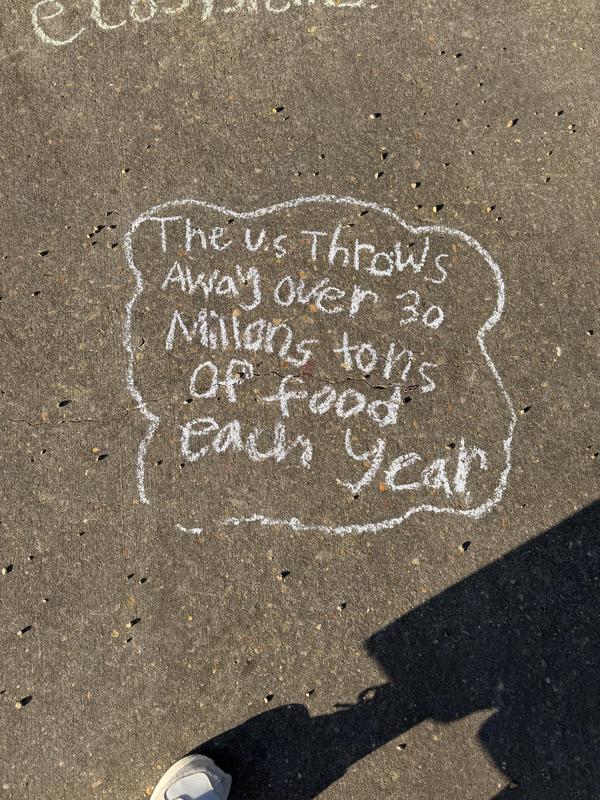 ecosystems.
The US Throws
Away over 30
Millons tons
Of food
each year